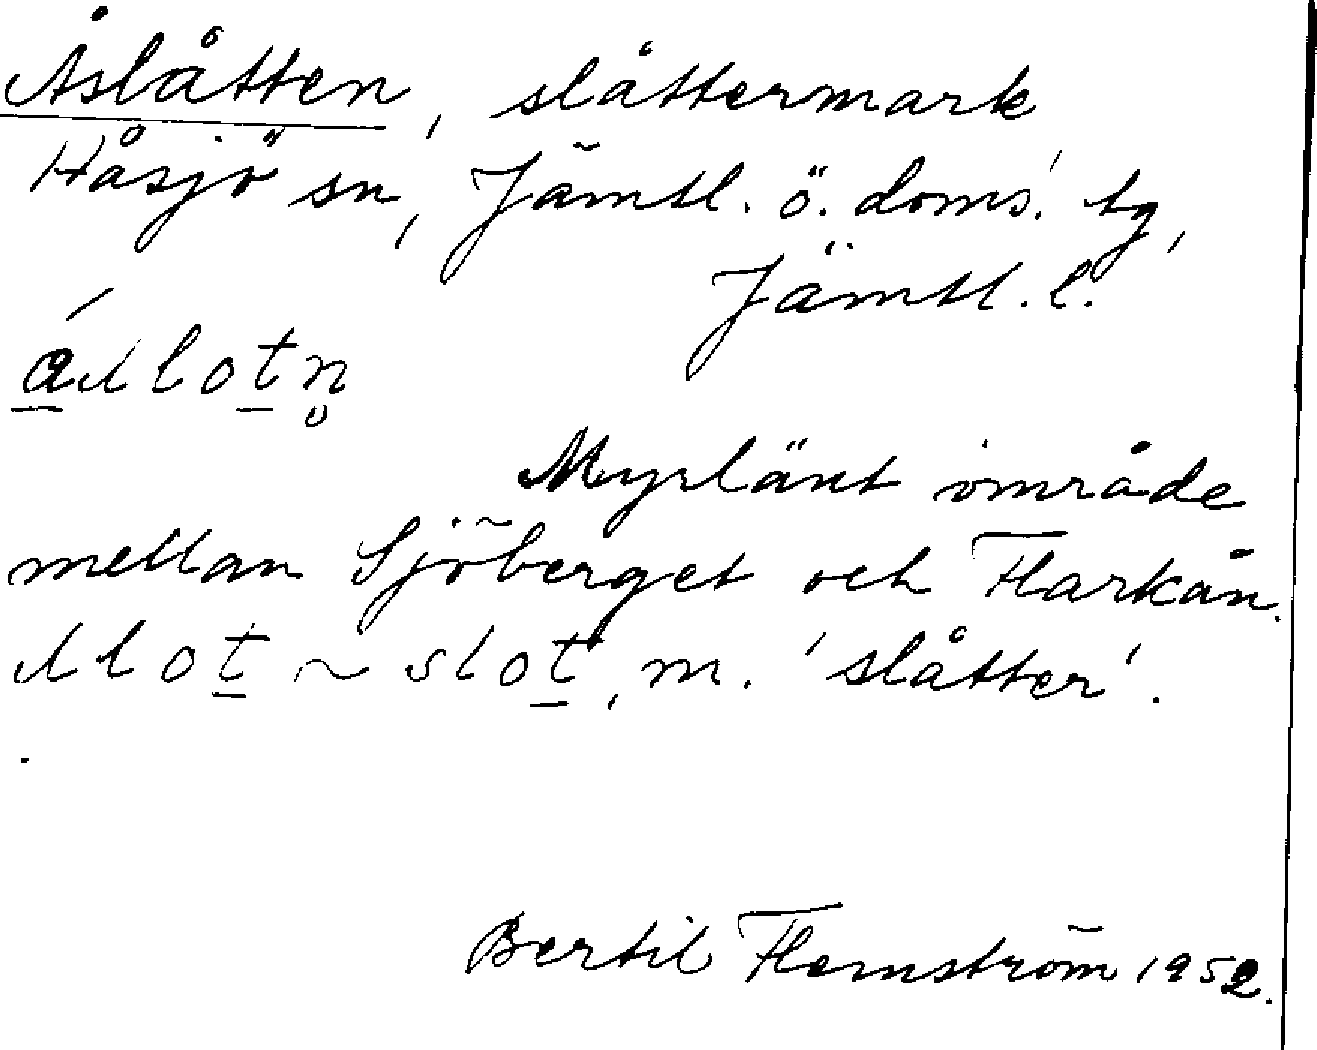 Åslåtten, slåttermark
Håsjö sn, Jämtl. ö. doms. tg,
Jämtl. l.
Myrlänt område
mellan Sjöberget och Flarkån.
slot ~ slot, m. 'slåtter'.
Bertil Flemström 1952.